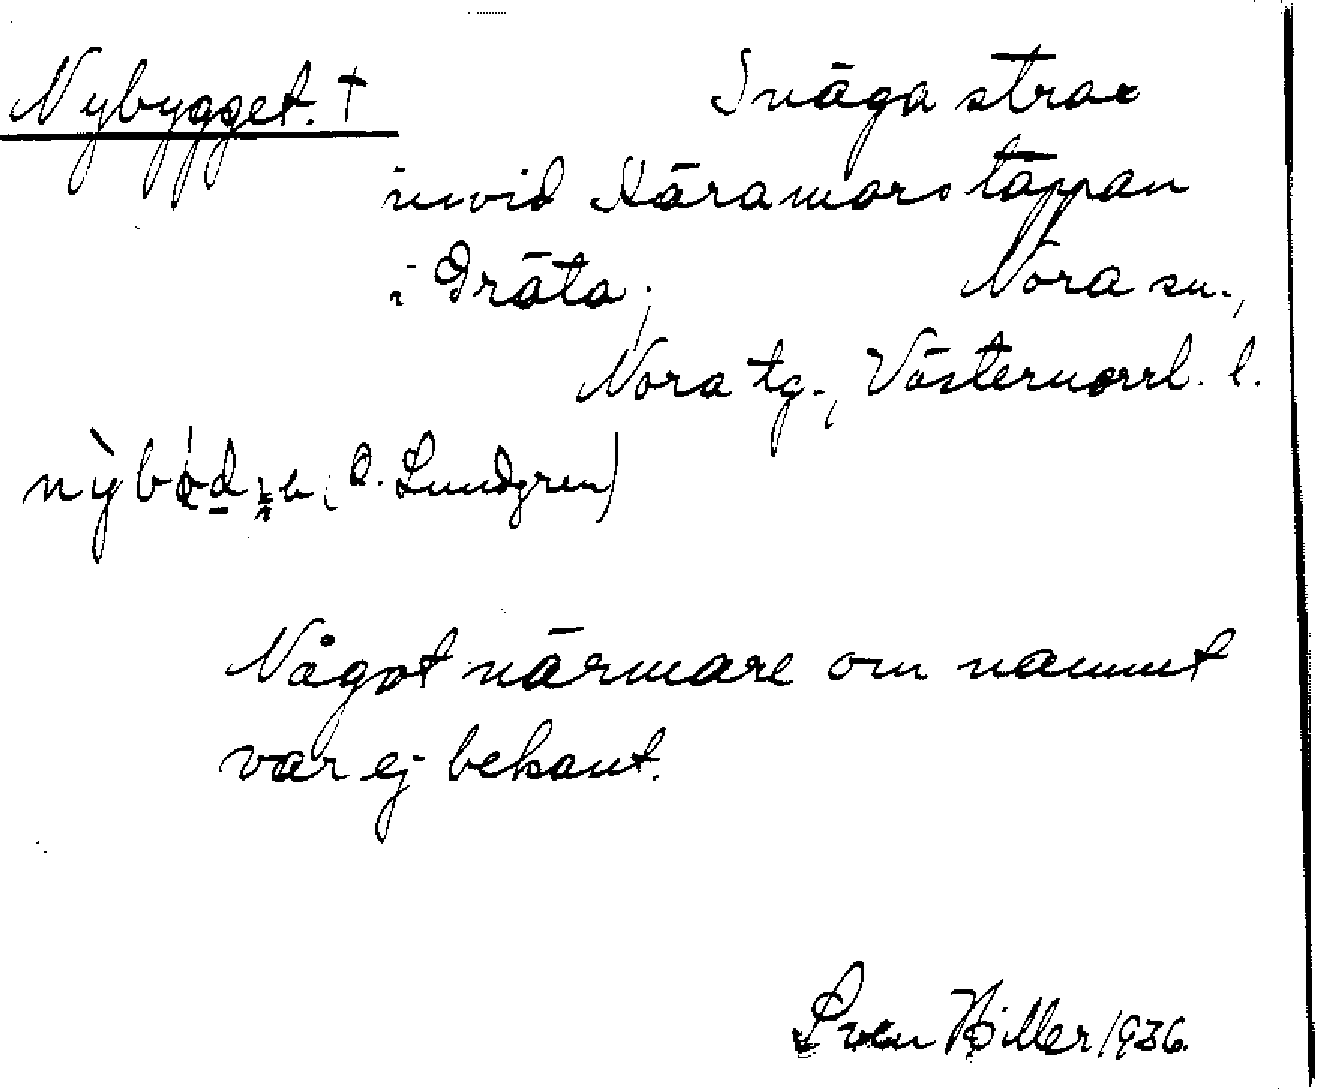 Nybygget. † Inäga strax
invid Täramorstäppan
i Dräta, Nora sn.,
Nora tg., Västernorrl. l.
(O. Lundgren)
Något närmare om namnet
var ej bekant.
Sven Hiller 1936.